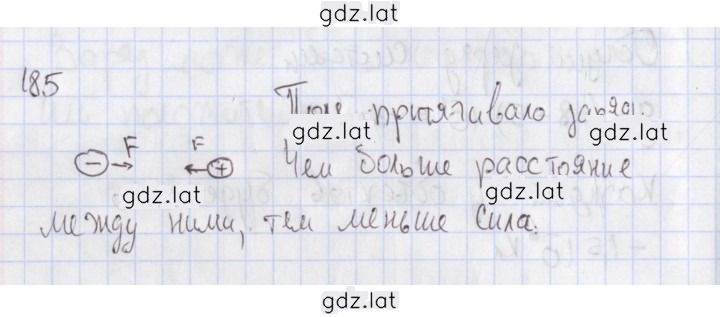 gdz.lat
185
притягивало
gdz.lat
gdz.lat
− F F +
Чем больше расстояние
gdz.lat
gdz.lat
между ними, тем меньше сила.
gdz.lat